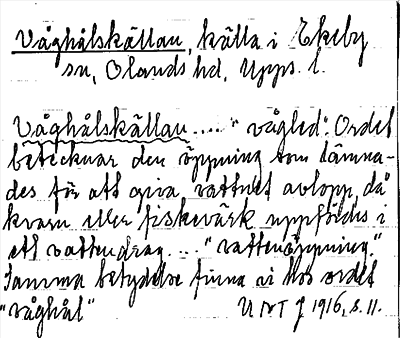 Våghålskällan, källa i Ekeby
sn, Olands hd, Upps. l.
Våghålskällan .... "vågled". Ordet
betecknar den öppning som lämna-
des för att giva vattnet avlopp, då
kvarn eller fiskevärk uppfördes i
ett vattendrag ... "vattenöppning."
Samma betydelse finna vi hos ordet
"våghål" UNT J 1916, s. 11.